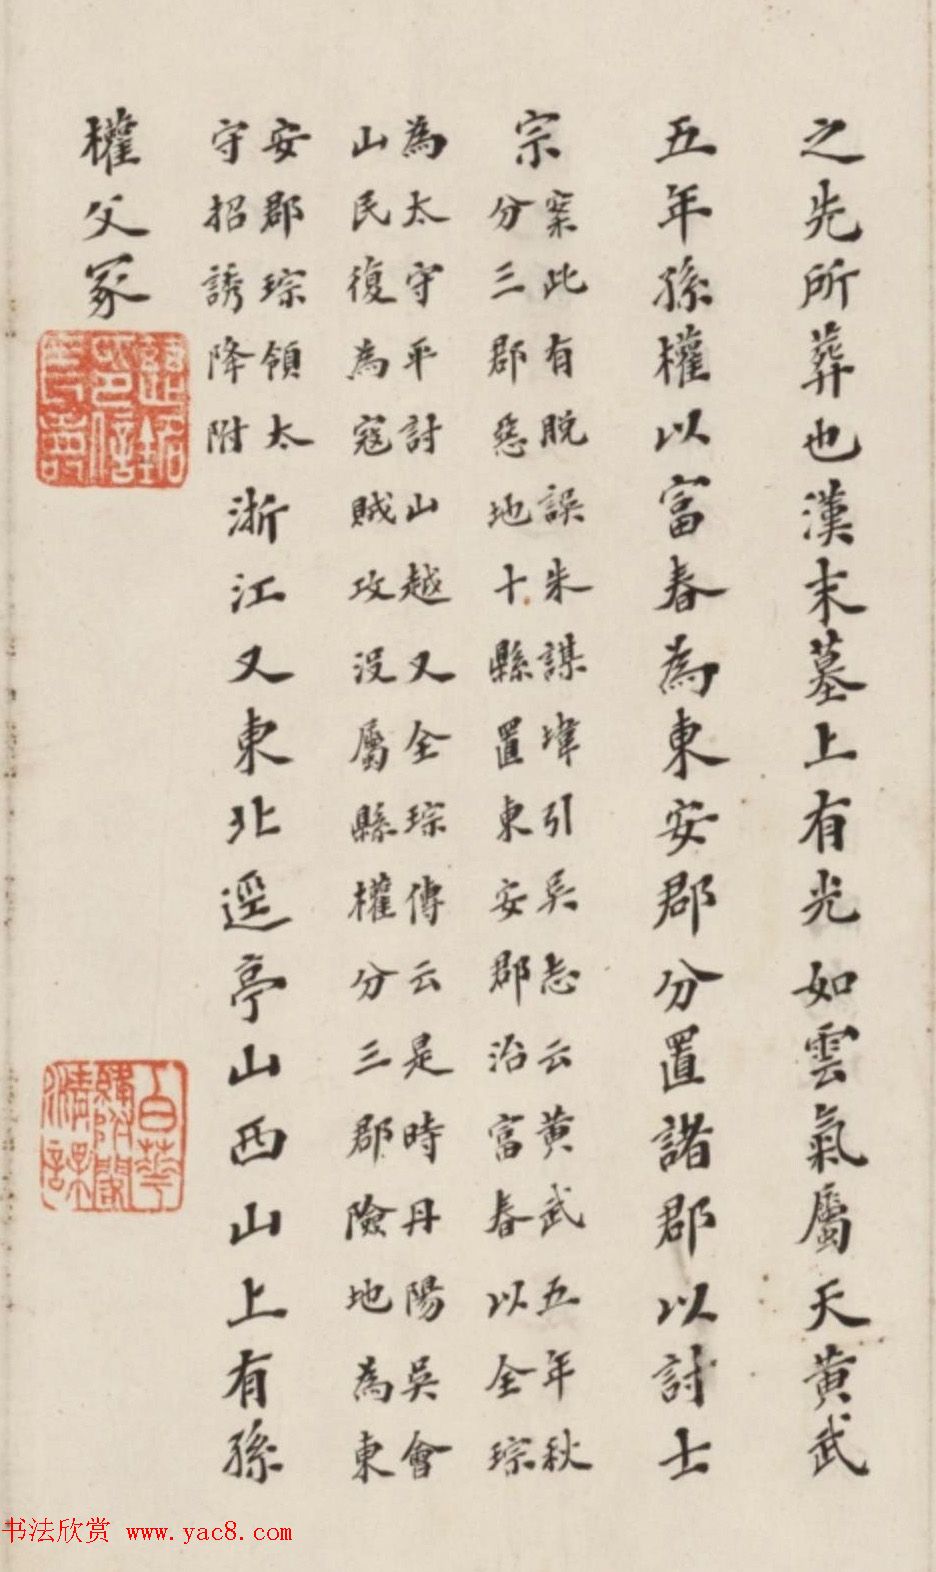 之先所葬也漢末墓上有光如雲氣屬天黃武
五年孫權以富春為東安郡分置諸郡以討士
宗
案此有脫誤朱謀㙔引吳志云黃武五年秋
分三郡惡地十縣置東安郡治富春以全琮
為太守平討山越又全琮傳云是時丹陽吳會
山民復為寇賊攻沒屬縣權分三郡險地為東
安郡琮領太
守招誘降附
浙江又東北逕亭山西山上有孫
權父冢
书法欣赏 www.yac8.com